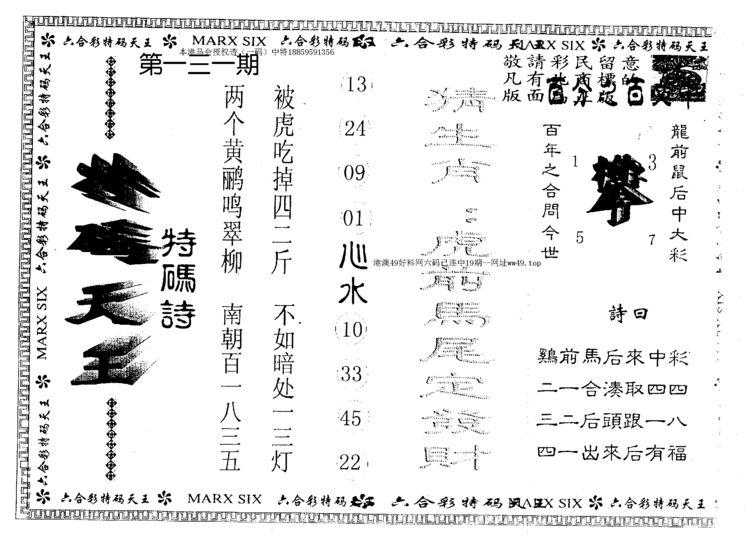 六合彩特码天王 MARX SIX 六合彩特码天王 六合彩特码天王 MARX SIX
本港马会授权透（一码）中特18859591356
第一三一期
特码天王
特碼詩
被虎吃掉四二斤 不如暗处一三灯
两个黄鹂鸣翠柳 南朝百一八三五
13
24
09
01
心水
10
33
45
22
猜生肖：虎前馬尾定發財
港澳49好料网六码已连中19期一网址ww49.top
敬請彩民留意
凡有
版面
龍前鼠后中大彩
百年之合問今世
1
3
5
7
詩曰
鷄前馬后來中彩
二一合湊取四四
三二后頭跟一八
四一出來后有福
六合彩特码天王 MARX SIX 六合彩特码 六合彩特码天王 MARX SIX 六合彩特码天王
六合彩特码天王 MARX SIX 六合彩特码天王